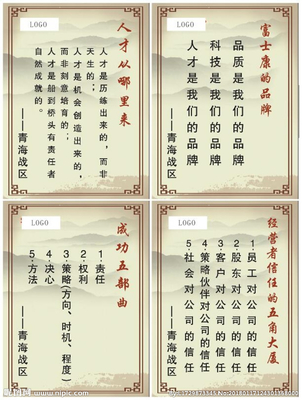 LOGO
人才从哪里来
人才是历练出来的，而非
天生的；
人才是机会创造出来的，
而非刻意培育的；
人才是船到桥头有责任者
自然成就的。
——青海战区
LOGO
富士康的品牌
品质是我们的品牌
科技是我们的品牌
人才是我们的品牌
——青海战区
LOGO
成功五部曲
1.责任
2.权利
3.策略(方向、时机、程度)
4.决心
5.方法
——青海战区
LOGO
经营者信任的五角大厦
1.员工对公司的信任
2.股东对公司的信任
3.客户对公司的信任
4.策略伙伴对公司的信任
5.社会对公司的信任
——青海战区
www.nipic.com